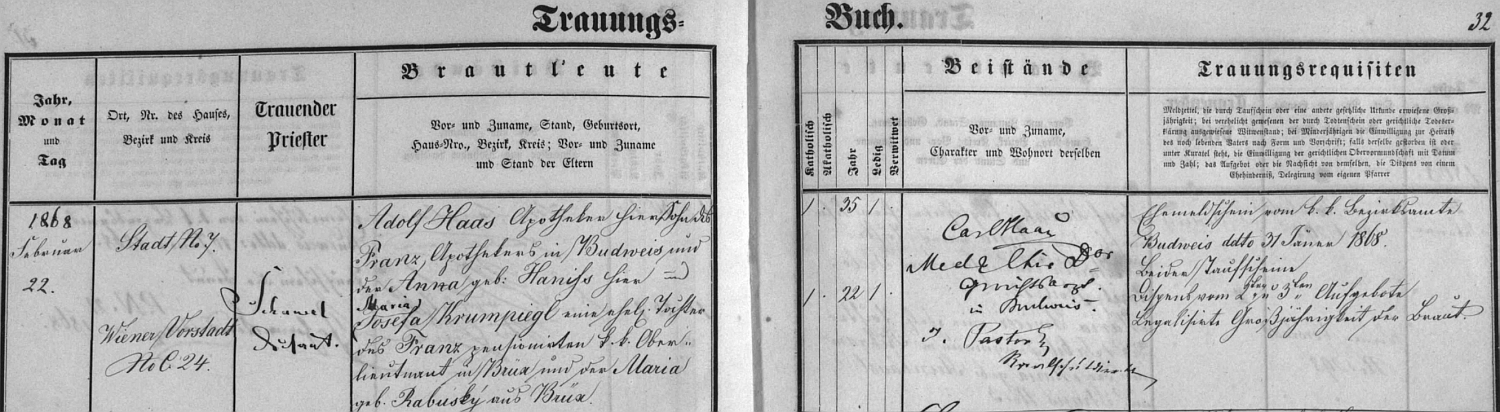 Trauungs-Buch.
32
Jahr,
Monat
und
Tag
Ort, Nr. des Hauses,
Bezirk und Kreis
Trauender
Priester
Brautleute
Vor- und Zuname, Stand, Geburtsort,
Haus-Nro., Bezirk, Kreis; Vor- und Zuname
und Stand der Eltern
Katholisch
Akatholisch
Jahr
Ledig
Verwitwet
Beistände
Vor- und Zuname,
Charakter und Wohnort derselben
Trauungsrequisiten
Meldzettel, die durch Taufschein oder eine andere gesetzliche Urkunde erwiesene Groß-
jährigkeit; bei verehelicht gewesenen der durch Todenschein oder gerichtliche Todeser-
klärung ausgewiesene Witwenstand; bei Minderjährigen die Einwilligung zur Heirath
des noch lebenden Vaters nach Form und Vorschrift; falls derselbe gestorben ist oder
unter Kuratel steht, die Einwilligung der gerichtlichen Obervormundschaft mit Datum
und Zahl; das Aufgebot oder die Nachsicht von demselben, die Dispens von einem
Ehehinderniß, Delegirung vom eigenen Pfarrer
1868
Februar
22.
Stadt No 7.
Wiener Vorstadt
No C. 24.
Dechant.
Adolf Haas Apotheker hier Sohn des
Franz, Apothekers in Budweis und
der Anna geb: Haniss hier
Maria
Josefa Krumpiegl eine ehel. Tochter
des Franz pensionirten k. k. Ober-
lieutnant in Brüx und der Maria
geb. Rabusky aus Brüx.
1 35 1
1 22 1
Carl Haas
Med & Chir Dor
Gerichtsarzt
in Budweis.
J. Pastor
Ehemeldschein vom k. k. Bezirksamte
Budweis ddto 31 Jäner 1868.
Beider Taufscheine
Dispens vom 2ten u 3ten Aufgebote
Legalisirte Großjährigkeit der Braut.